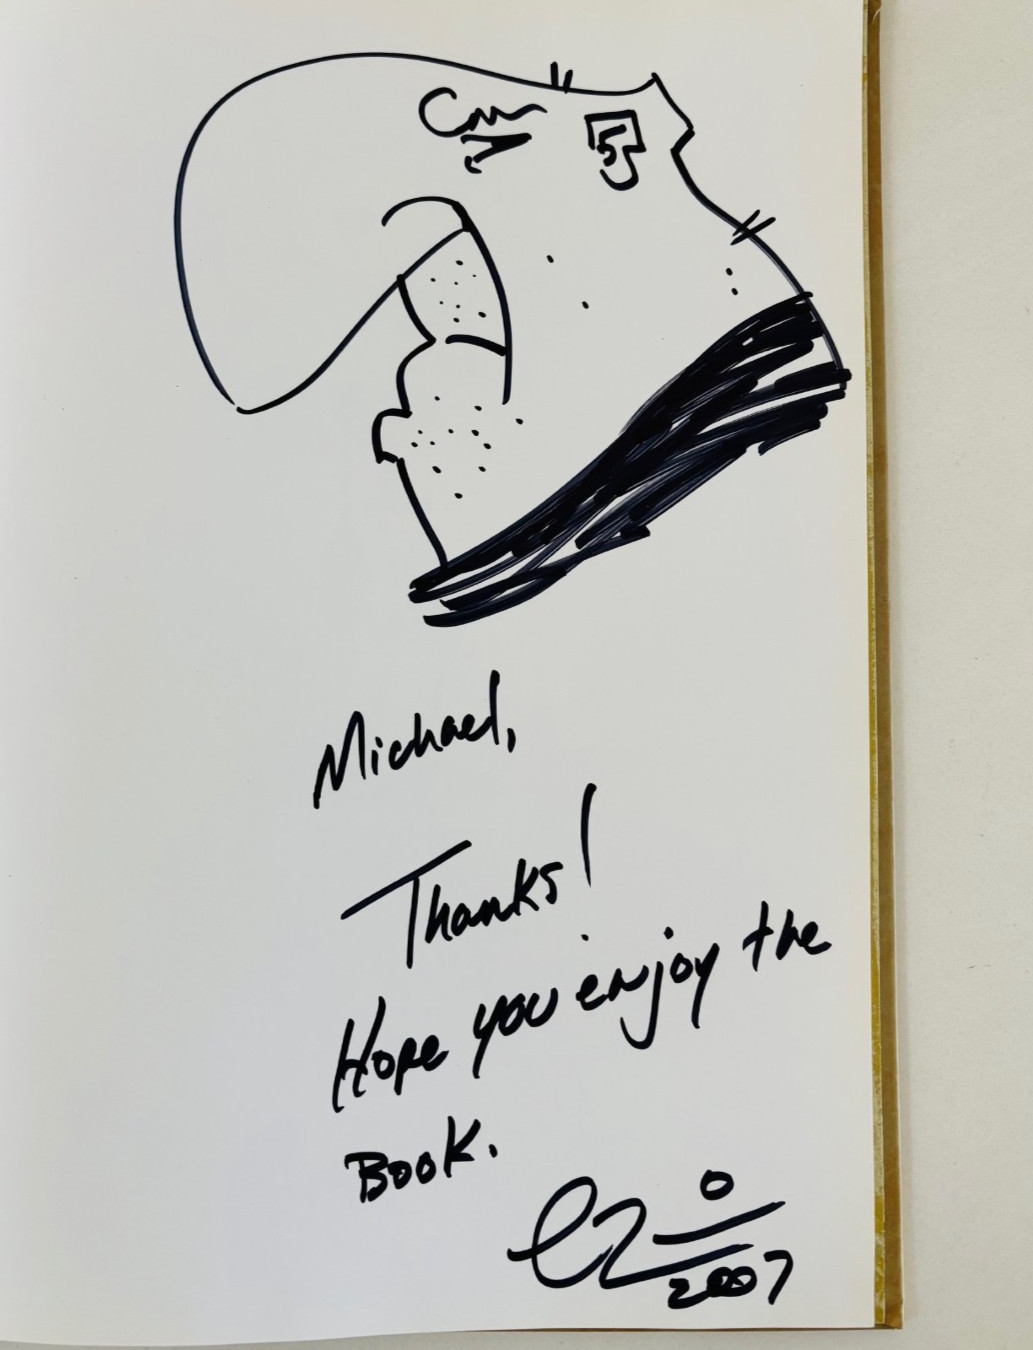 Michael,
Thanks!
Hope you enjoy the
Book.
2007